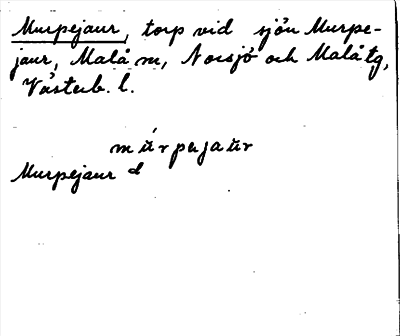 Murpejaur, torp vid sjön Murpe-
jaur, Malå sn, Norsjö och Malå tg,
Västerb. l.
Murpejaur d